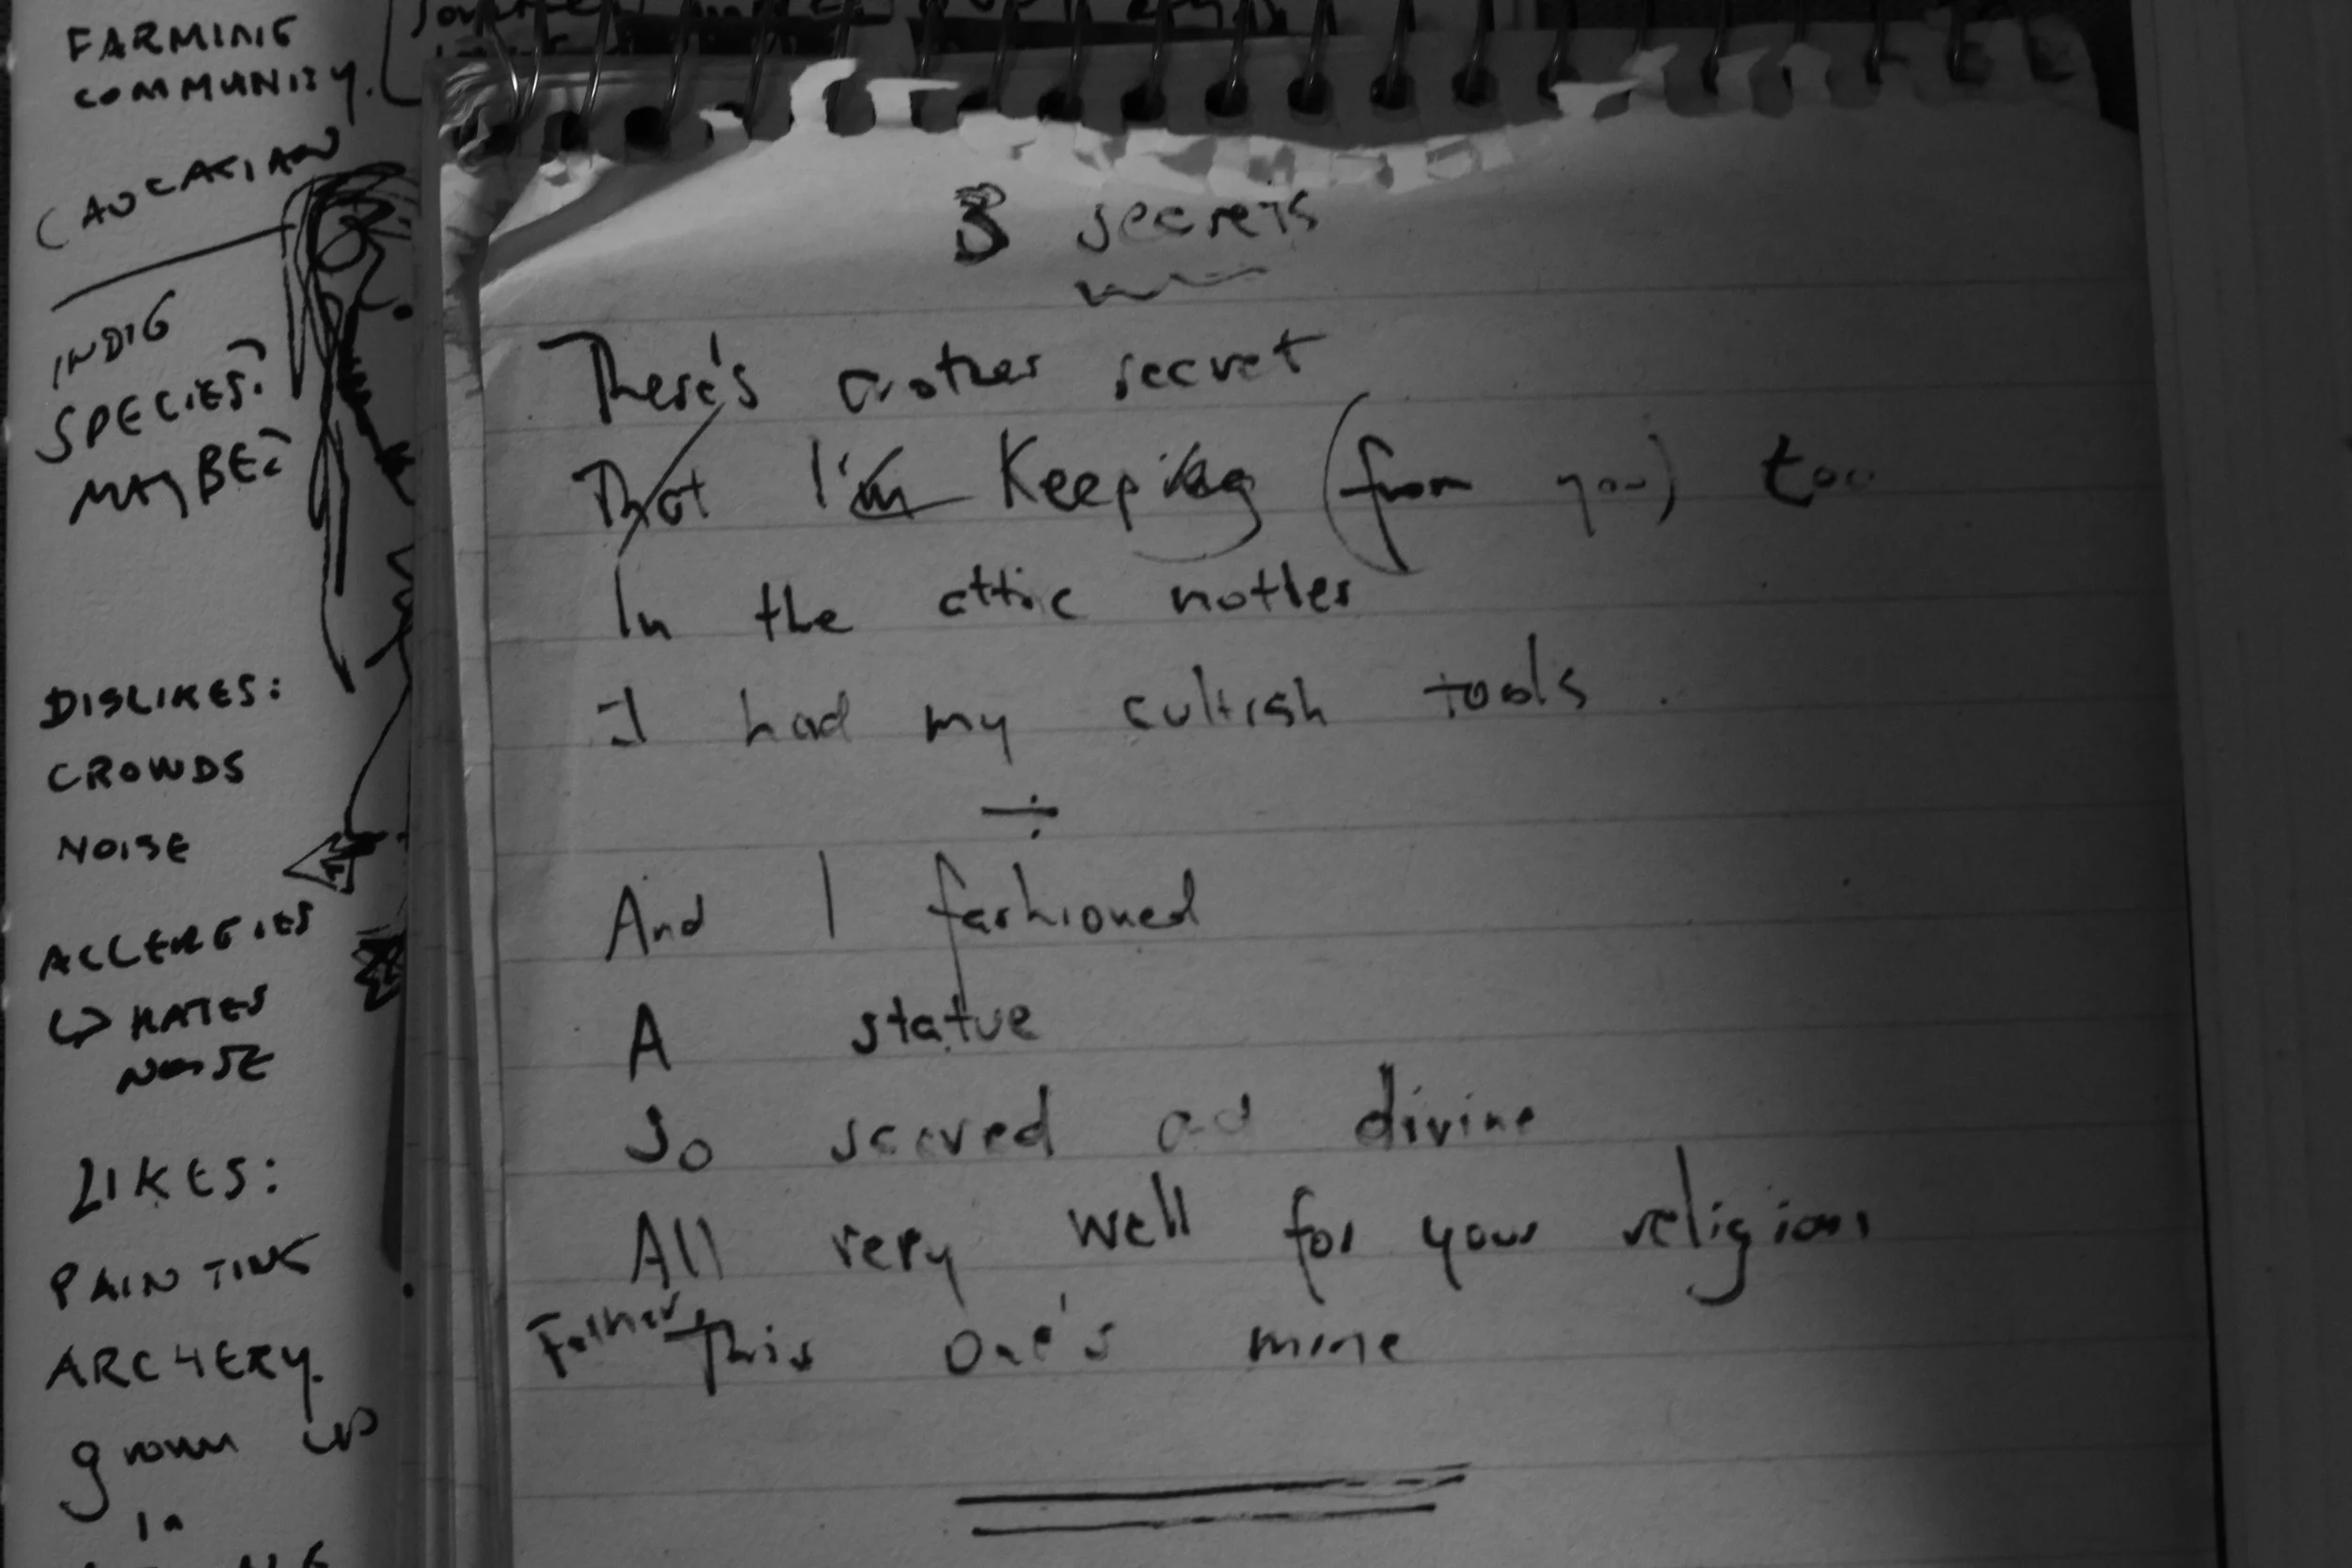 FARMING
COMMUNITY.
CAUCASIAN
INDIG
SPECIES?
MAYBE?
DISLIKES:
CROWDS
NOISE
ALLERGIES
↳ HATES
NOISE
LIKES:
PAINTING
ARCHERY.
grown up
in
3 secrets
There's another secret
That I'm Keeping (from you) too
In the attic mother
I had my cultish tools.
÷
And I fashioned
A statue
So sacred and divine
All very well for your religion,
Father, This one's mine